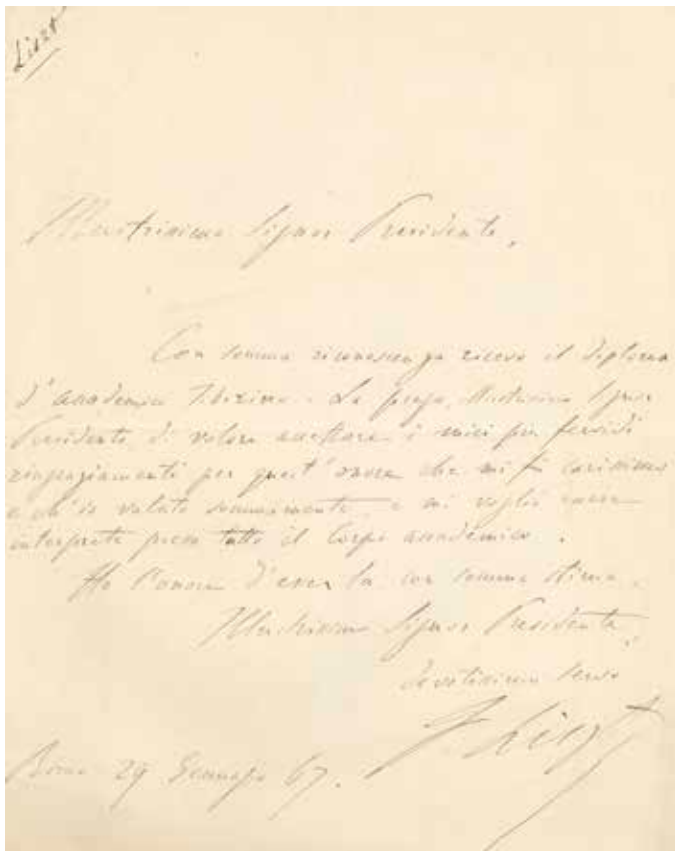 Liszt
Illustrissimo Signor Presidente,
Con somma riconoscenza ricevo il diploma
d'academico Tiberino. La prego, Illustrissimo Signor
Presidente di volere accettare i miei più fervidi
ringraziamenti per quest'onore che mi è carissimo
e ch'io valuto sommamente, e mi voglia essere
interprete presso tutto il Corpo academico.
Ho l'onore d'esser la con somma stima,
Illustrissimo Signor Presidente,
devotissimo servo
F Liszt
Roma 29 Gennajo 67.